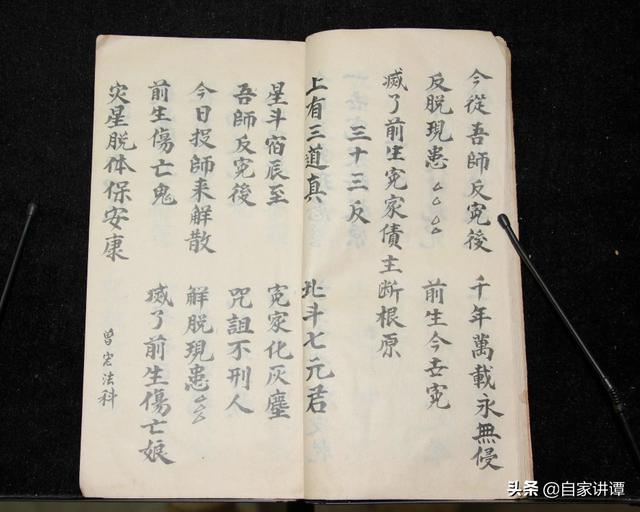 今從吾師反寃後 千年萬載永無侵
反脱現患厶厶厶 前生今世寃
滅了前生寃家債主斷根原
三十三反
上有三道真 北斗七元君
星斗宿辰至 寃家化灰塵
吾師反寃後 咒詛不刑人
今日投師来解散 解脱現患厶厶厶
前生傷亡鬼 滅了前生傷亡娘
灾星脱体保安康
曾 法科
头条 @自家讲谭